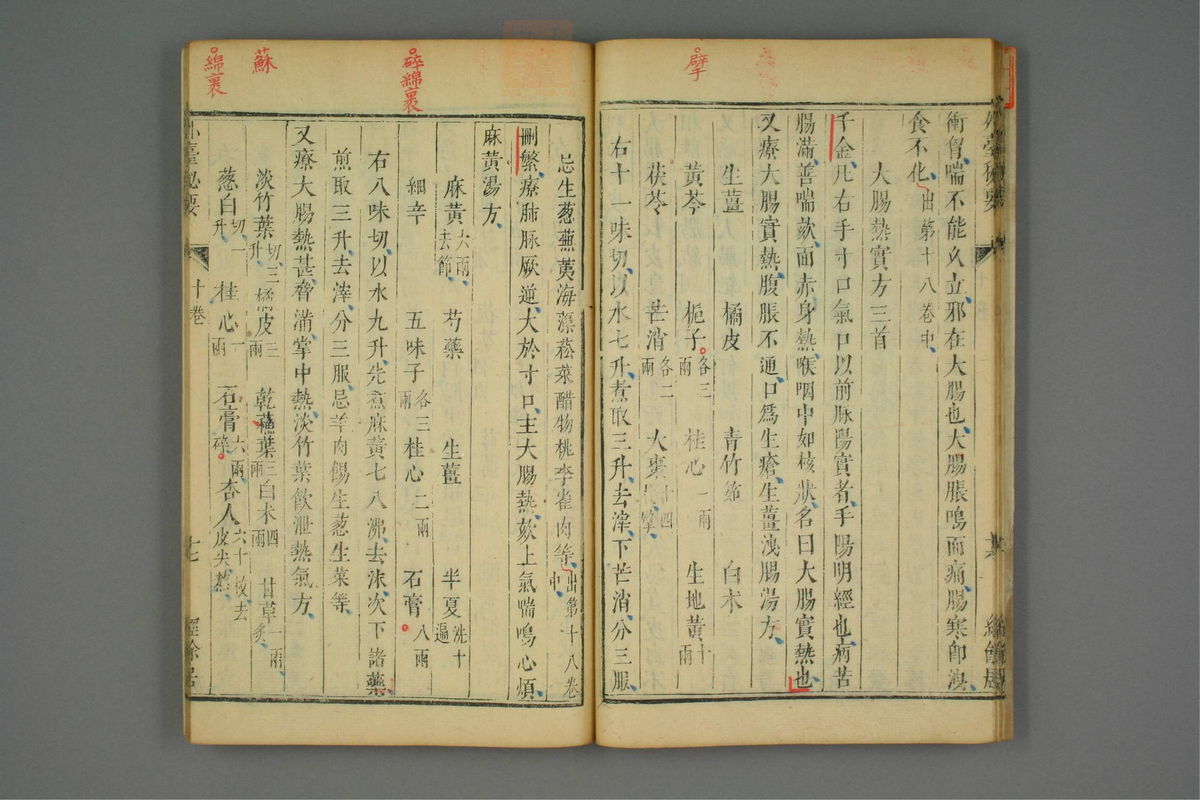 衝胷喘不能久立邪在大腸也大腸脹鳴而痛腸寒即洩
食不化出第十八卷中
大腸熱實方三首
千金凡右手寸口氣口以前脉陽實者手陽明經也病苦
腸滿善喘欬面赤身熱喉咽中如核狀名曰大腸實熱也
又療大腸實熱腹脹不通口爲生瘡生薑洩腸湯方
生薑 橘皮 青竹茹 白术
黄芩 梔子各三兩 桂心一兩 生地黄十兩
茯苓 芒消各二兩 大棗十四
右十一味切以水七升煮取三升去滓下芒消分三服
擘
忌生葱蕪荑海藻菘菜醋物桃李雀肉等出第十八卷中
刪繁療肺脉厥逆大於寸口主大腸熱欬上氣喘鳴心煩
麻黄湯方
麻黄六兩去節 芍藥 生薑 半夏洗十遍
細辛 五味子各三兩 桂心二兩 石膏八兩
右八味切以水九升先煮麻黄七八沸去沫次下諸藥
煎取三升去滓分三服忌羊肉餳生葱生菜等
又療大腸熱甚脅滿掌中熱淡竹葉飲泄熱氣方
淡竹葉切三升 橘皮三兩 乾蘓葉三兩 白术四兩 甘草一兩炙
葱白切一升 桂心一兩 石膏六兩碎 杏人六十枚去皮尖
碎綿裹
蘇
綿裹
十卷
十七
經餘居